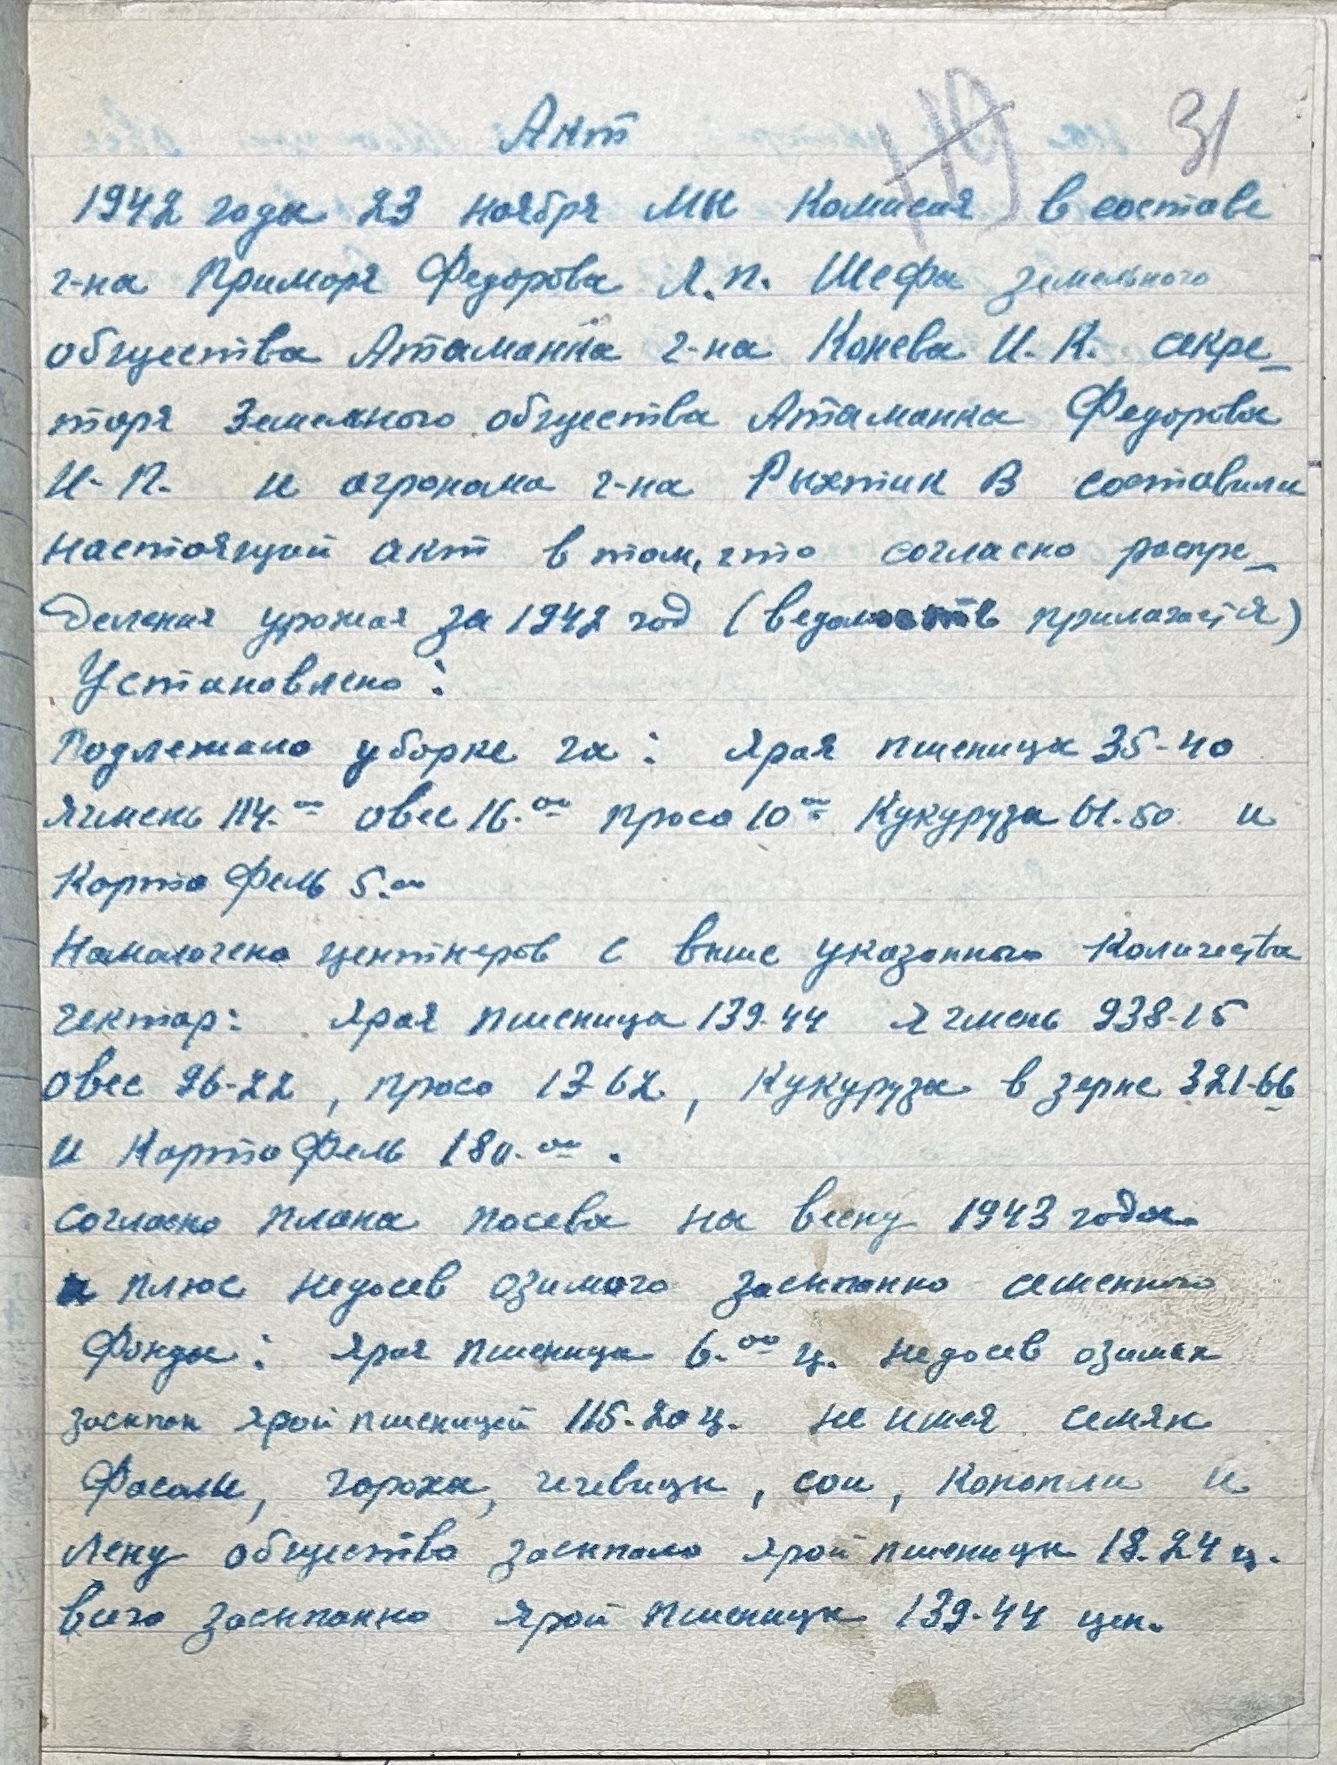 31
Акт
1942 года 23 ноября мы Комисия в составе
г-на Примаря Федорова Я.П. Шефа земельного
общества Атаманка г-на Конева И.К. секре-
таря Земельного общества Атаманка Федорова
И.П. и агронома г-на Рыхтик В составили
настоящий акт в том, что согласно распре-
деления урожая за 1942 год (ведомость прилагается)
Установлено:
Подлежало уборке га: Ярая пшеница 35-40
Ячмень 114.00 овес 16.00 просо 10 00 Кукуруза 61.50 и
Картофель 5.00
Намолочено центнеров с выше указанного Количества
гектар: Ярая пшеница 139.44 Ячмень 938-15
овес 96-22, просо 13 62, Кукуруза в зерне 321-66
и Картофель 180.00.
согласно плана посева на весну 1943 года
и плюс недосев озимого засыпанно семенного
Фонда: Ярая пшеница 6.00 ц. недосев озимых
засыпан Ярой пшеницей 115-20 ц. не имея семян
Фасоли, гороха, чечевицы, сои, Конопли и
Лену общество засыпало Ярой пшеницы 18.24 ц.
всего засыпанно Ярой пшеницы 139-44 цен.